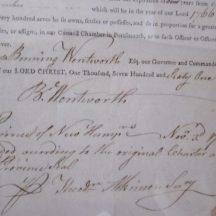 which will be in the Year of our Lord 176
every acre he so owns, settles or possesses, and so in proportion for a greater
or assigns, in our Council Chamber in Portsmouth, or to such Officer or Officers
Benning Wentworth Esq; our Governor and Commander
of our LORD CHRIST, One Thousand, Seven Hundred and Sixty One
B. Wentworth
Province of New Hamp
according to the original Charter
Province Seal
Theodr Atkinson Secy